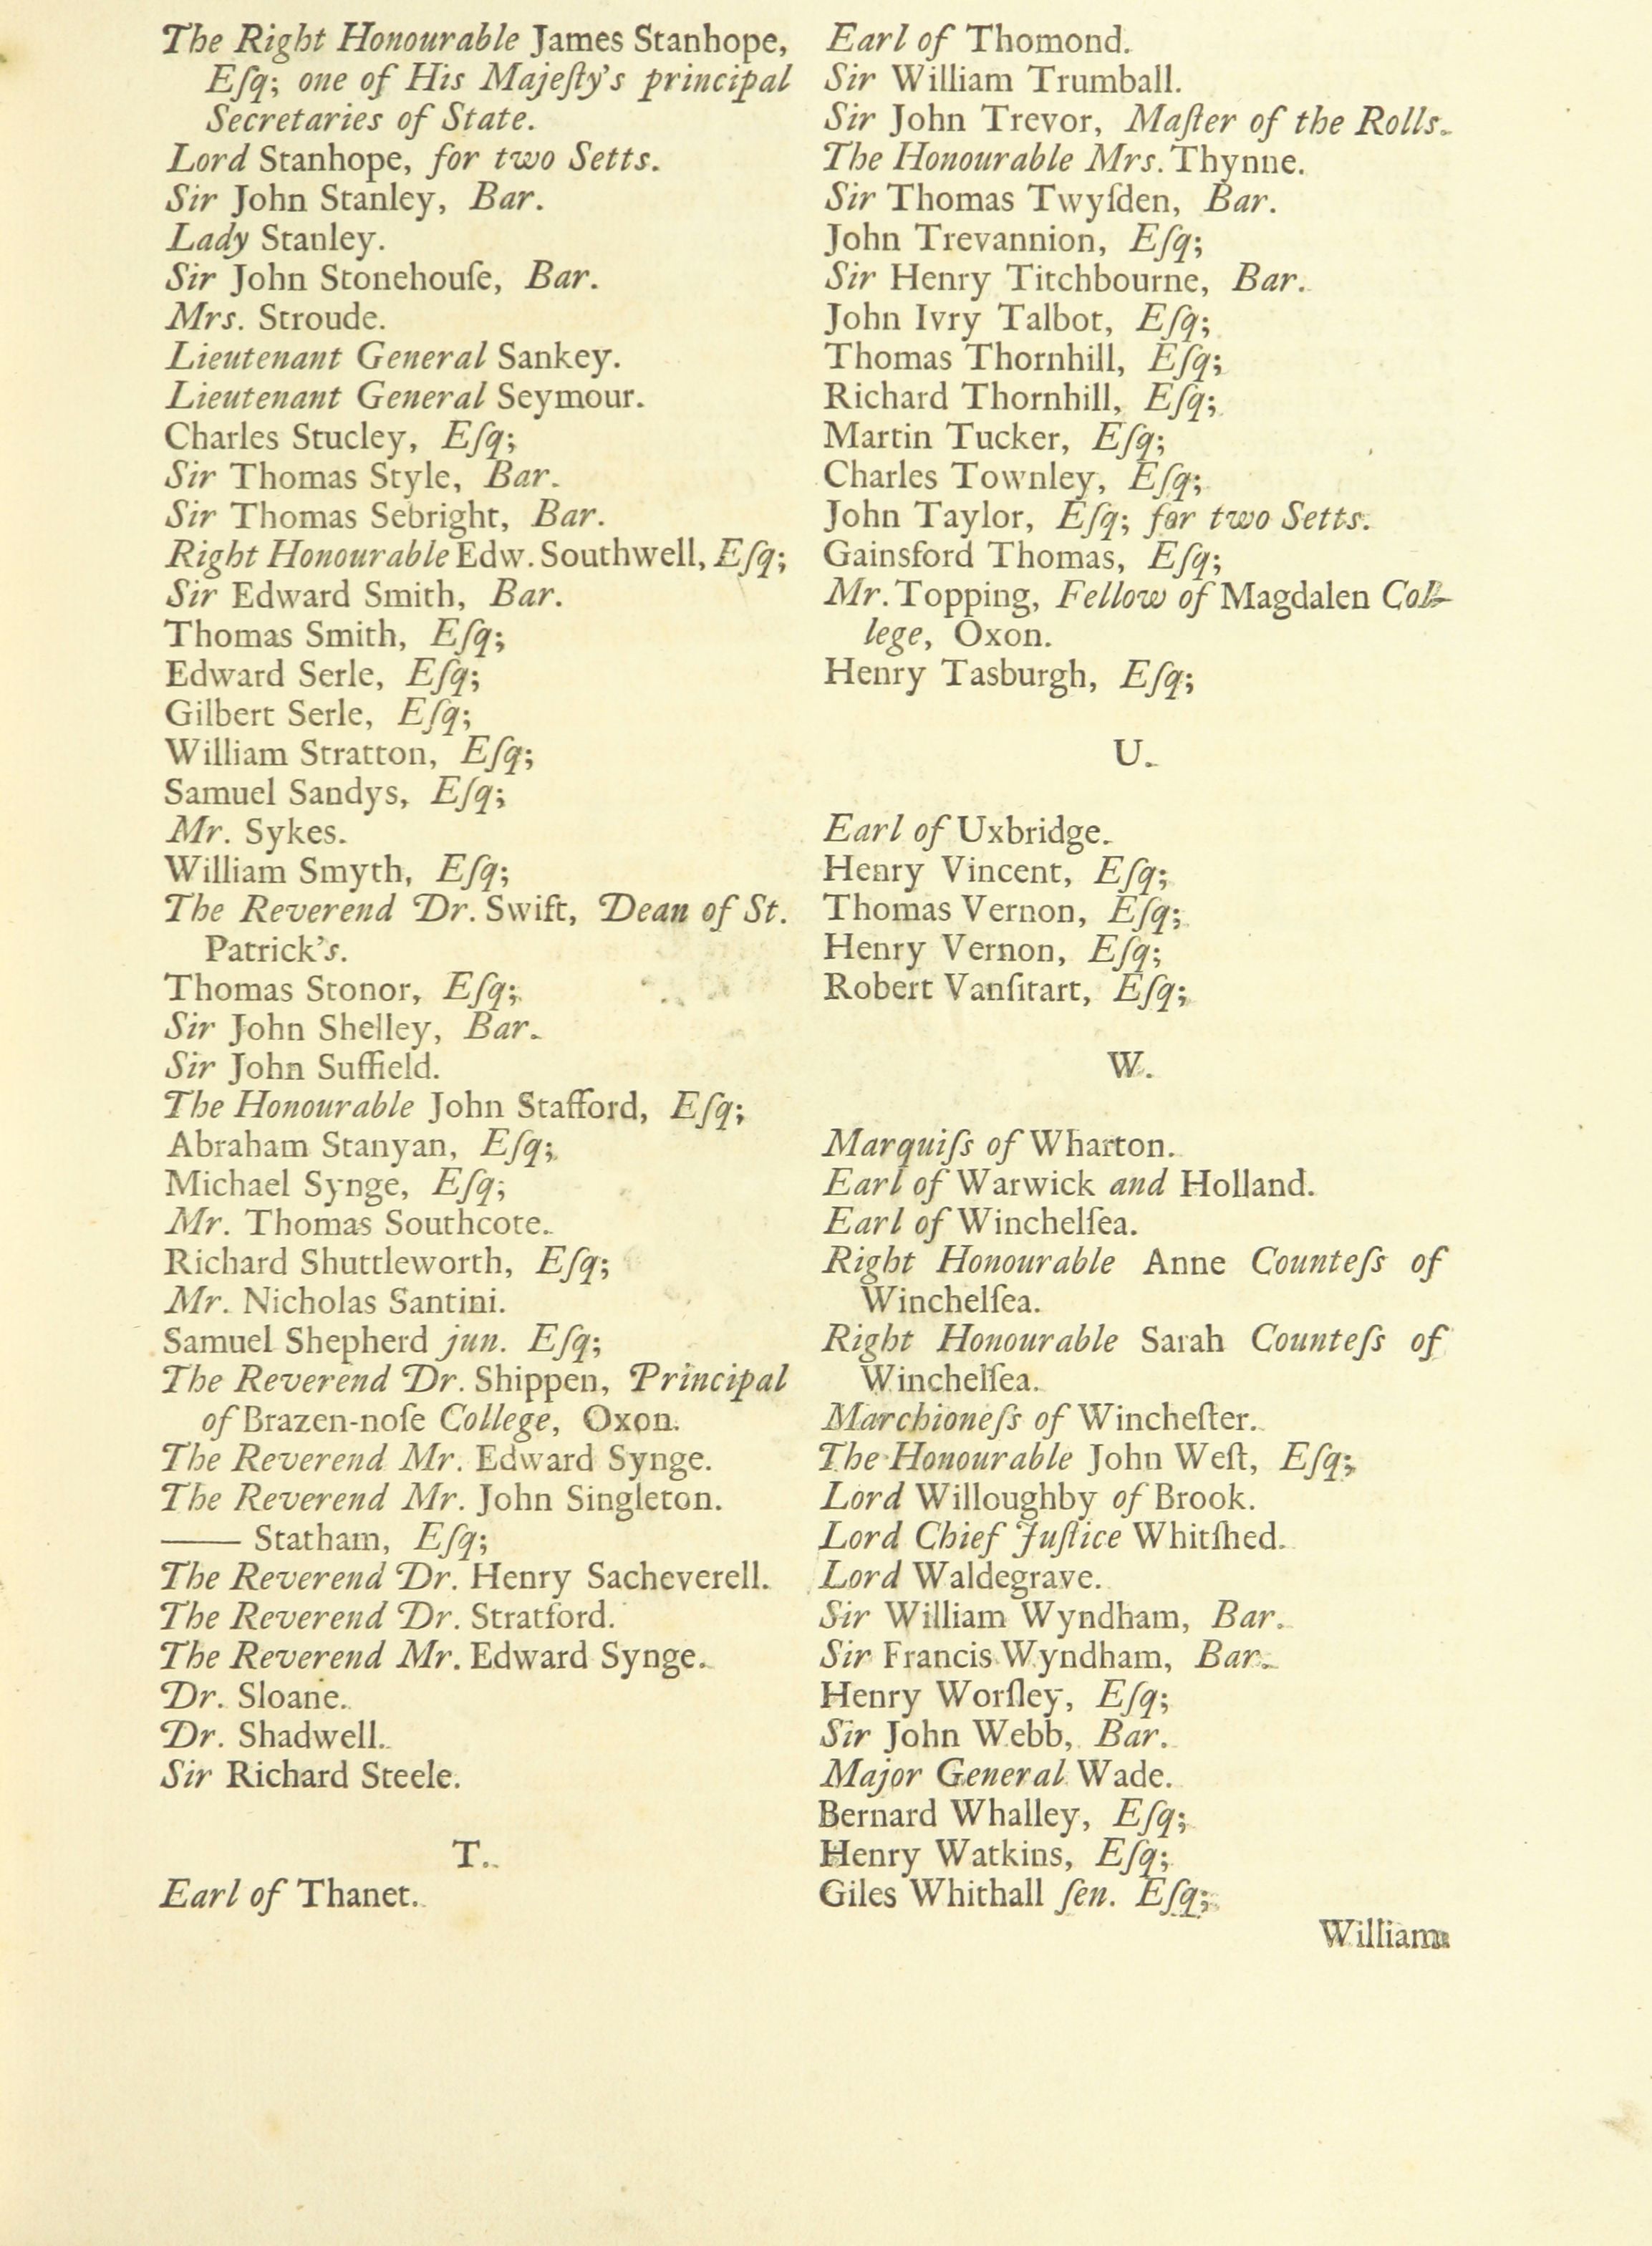 The Right Honourable James Stanhope,
Eſq; one of His Majeſty's principal
Secretaries of State.
Lord Stanhope, for two Setts.
Sir John Stanley, Bar.
Lady Stanley.
Sir John Stonehouſe, Bar.
Mrs. Stroude.
Lieutenant General Sankey.
Lieutenant General Seymour.
Charles Stucley, Eſq;
Sir Thomas Style, Bar.
Sir Thomas Sebright, Bar.
Right Honourable Edw. Southwell, Eſq;
Sir Edward Smith, Bar.
Thomas Smith, Eſq;
Edward Serle, Eſq;
Gilbert Serle, Eſq;
William Stratton, Eſq;
Samuel Sandys, Eſq;
Mr. Sykes.
William Smyth, Eſq;
The Reverend Dr. Swift, Dean of St.
Patrick's.
Thomas Stonor, Eſq;
Sir John Shelley, Bar.
Sir John Suffield.
The Honourable John Stafford, Eſq;
Abraham Stanyan, Eſq;
Michael Synge, Eſq;
Mr. Thomas Southcote.
Richard Shuttleworth, Eſq;
Mr. Nicholas Santini.
Samuel Shepherd jun. Eſq;
The Reverend Dr. Shippen, Principal
of Brazen-noſe College, Oxon.
The Reverend Mr. Edward Synge.
The Reverend Mr. John Singleton.
—— Statham, Eſq;
The Reverend Dr. Henry Sacheverell.
The Reverend Dr. Stratford.
The Reverend Mr. Edward Synge.
Dr. Sloane.
Dr. Shadwell.
Sir Richard Steele.
T.
Earl of Thanet.
Earl of Thomond.
Sir William Trumball.
Sir John Trevor, Maſter of the Rolls.
The Honourable Mrs. Thynne.
Sir Thomas Twyſden, Bar.
John Trevannion, Eſq;
Sir Henry Titchbourne, Bar.
John Ivry Talbot, Eſq;
Thomas Thornhill, Eſq;
Richard Thornhill, Eſq;
Martin Tucker, Eſq;
Charles Townley, Eſq;
John Taylor, Eſq; for two Setts.
Gainsford Thomas, Eſq;
Mr. Topping, Fellow of Magdalen Col-
lege, Oxon.
Henry Tasburgh, Eſq;
U.
Earl of Uxbridge.
Henry Vincent, Eſq;
Thomas Vernon, Eſq;
Henry Vernon, Eſq;
Robert Vanſitart, Eſq;
W.
Marquiſs of Wharton.
Earl of Warwick and Holland.
Earl of Winchelſea.
Right Honourable Anne Counteſs of
Winchelſea.
Right Honourable Sarah Counteſs of
Winchelſea.
Marchioneſs of Wincheſter.
The Honourable John Weſt, Eſq;
Lord Willoughby of Brook.
Lord Chief Juſtice Whitſhed.
Lord Waldegrave.
Sir William Wyndham, Bar.
Sir Francis Wyndham, Bar.
Henry Worſley, Eſq;
Sir John Webb, Bar.
Major General Wade.
Bernard Whalley, Eſq;
Henry Watkins, Eſq;
Giles Whithall ſen. Eſq;
William